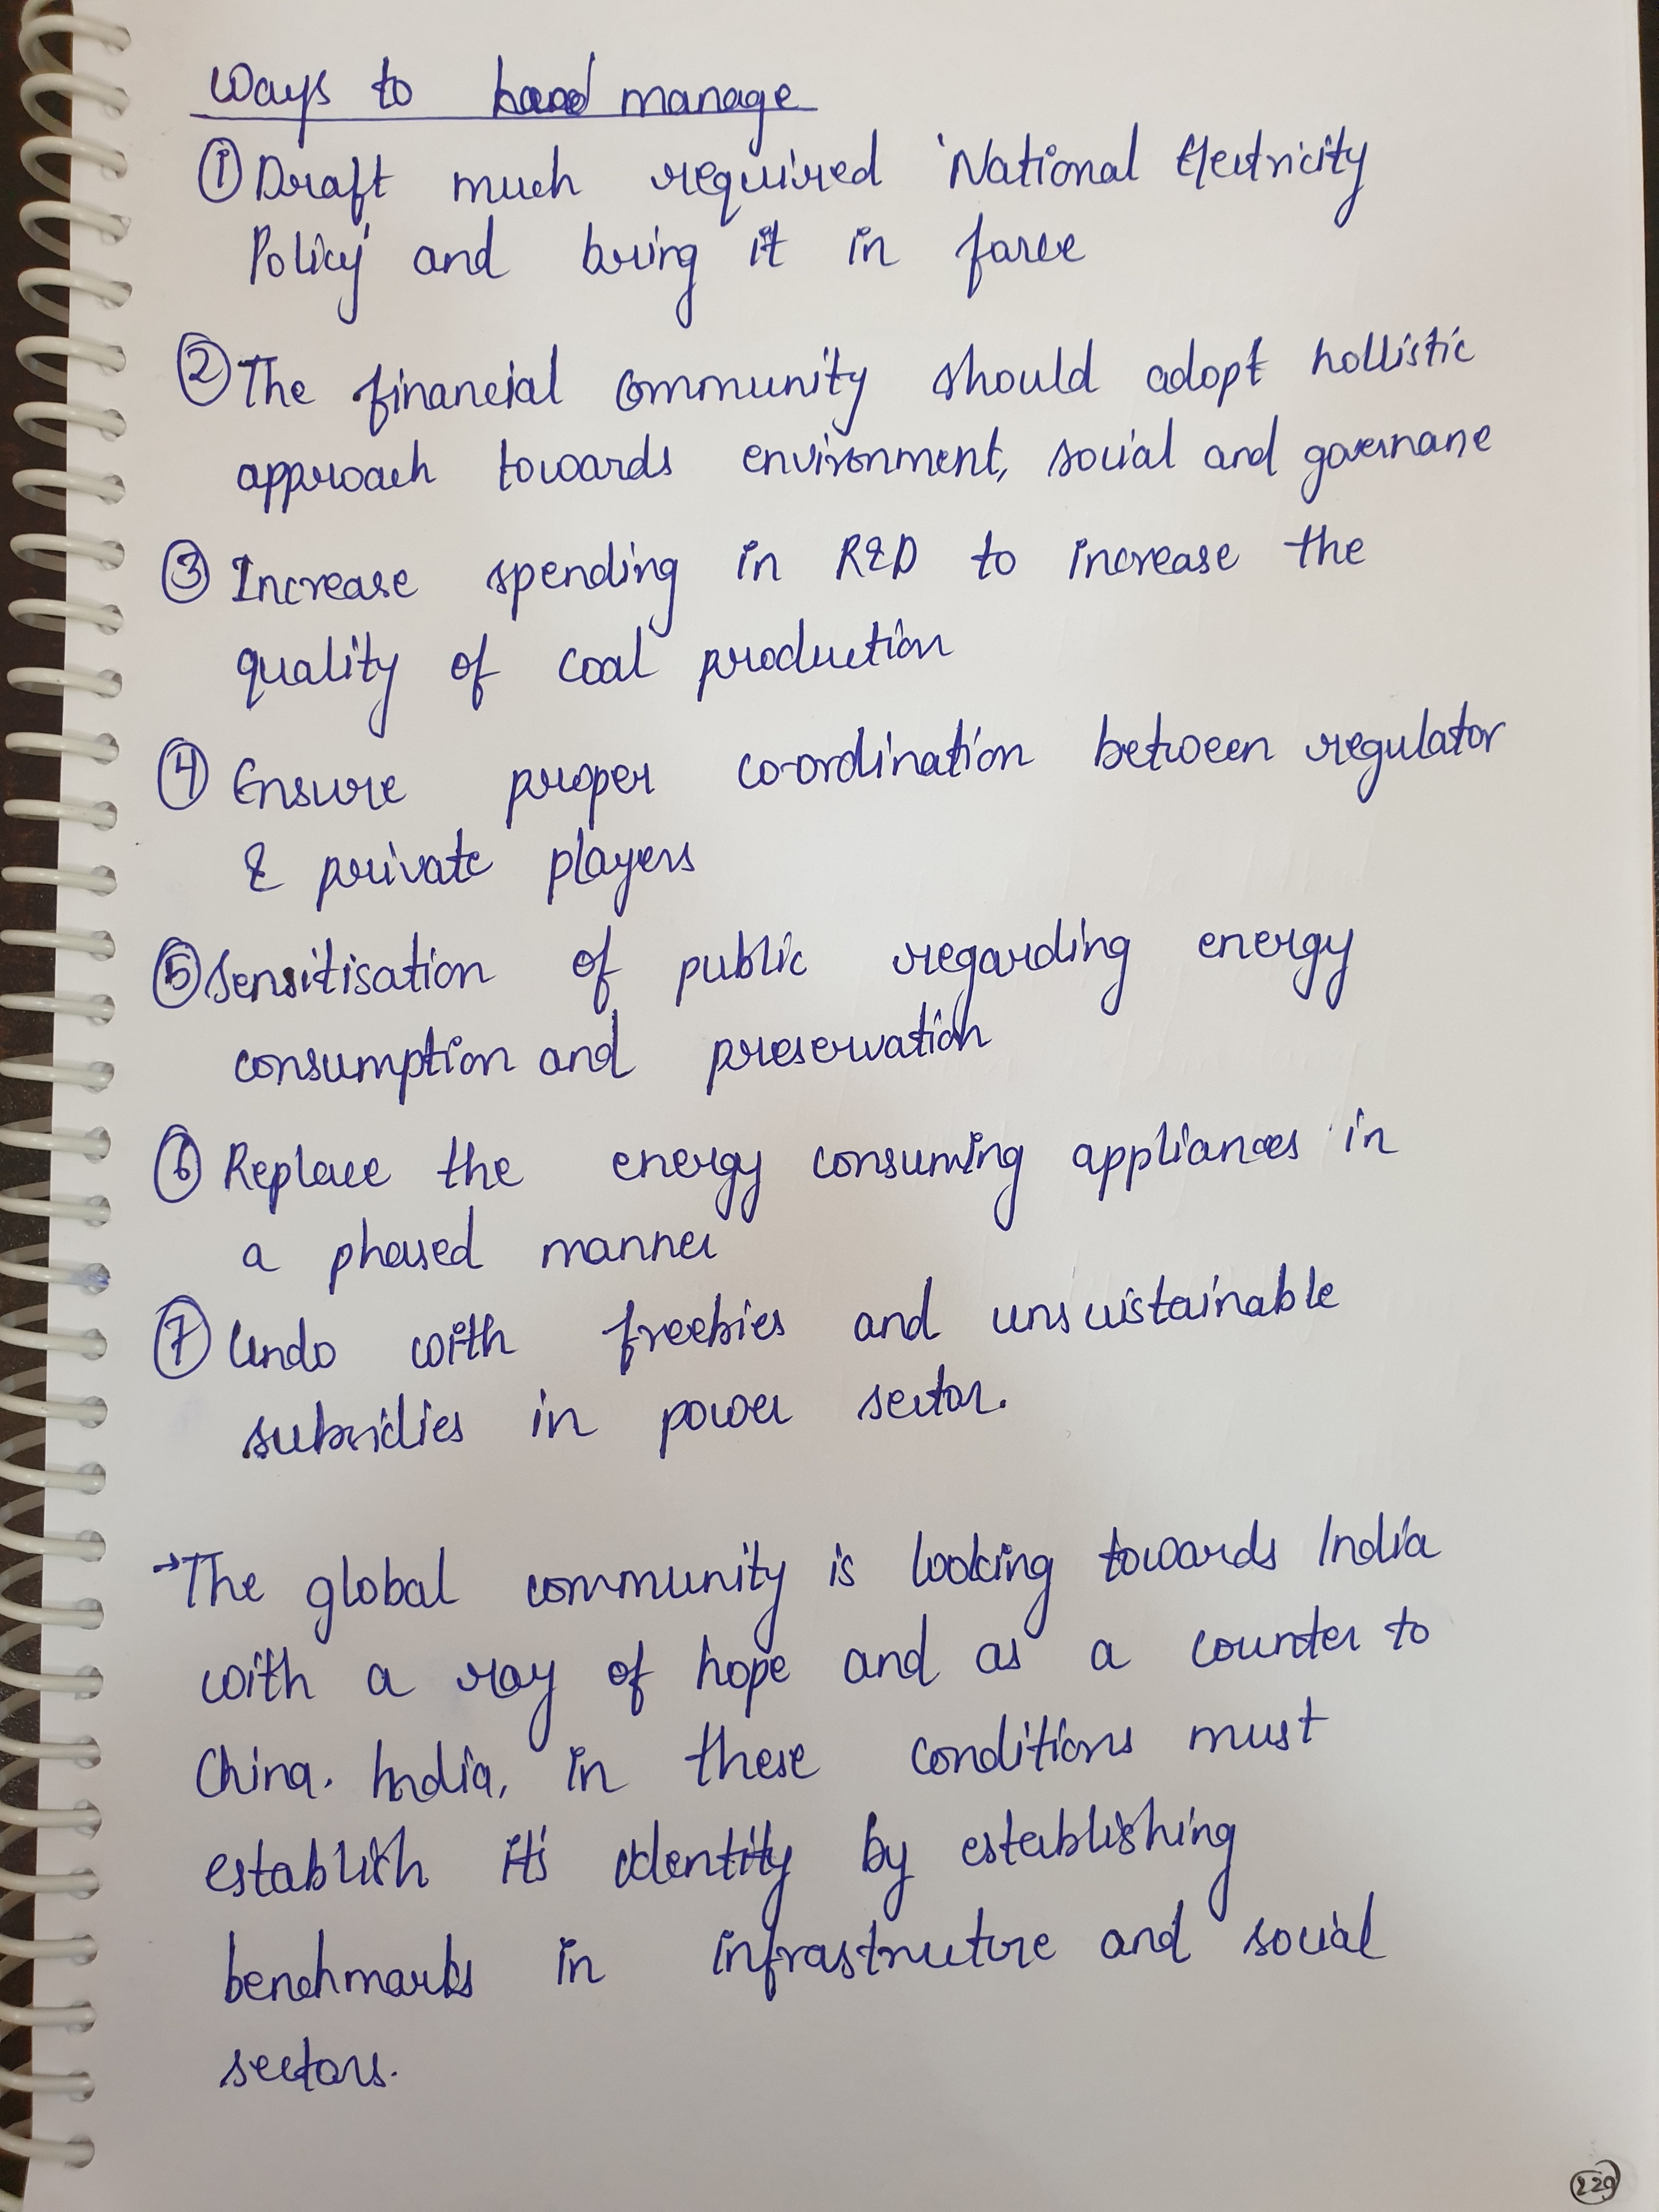 Ways to manage
① Draft much required 'National Electricity
Policy' and bring it in force
② The financial community should adopt hollistic
approach towards environment, social and governane
③ Increase spending in R&D to increase the
quality of coal production
④ Ensure proper co-ordination between regulator
& private players
⑤ Sensitisation of public regarding energy
consumption and preservation
⑥ Replace the energy consuming appliances in
a phased manner
⑦ Undo with freebies and unsustainable
subsidies in power sector.
→ The global community is looking towards India
with a ray of hope and as a counter to
China. India, in these conditions must
establish its identity by establishing
benchmarks in infrastructure and social
sectors.
229